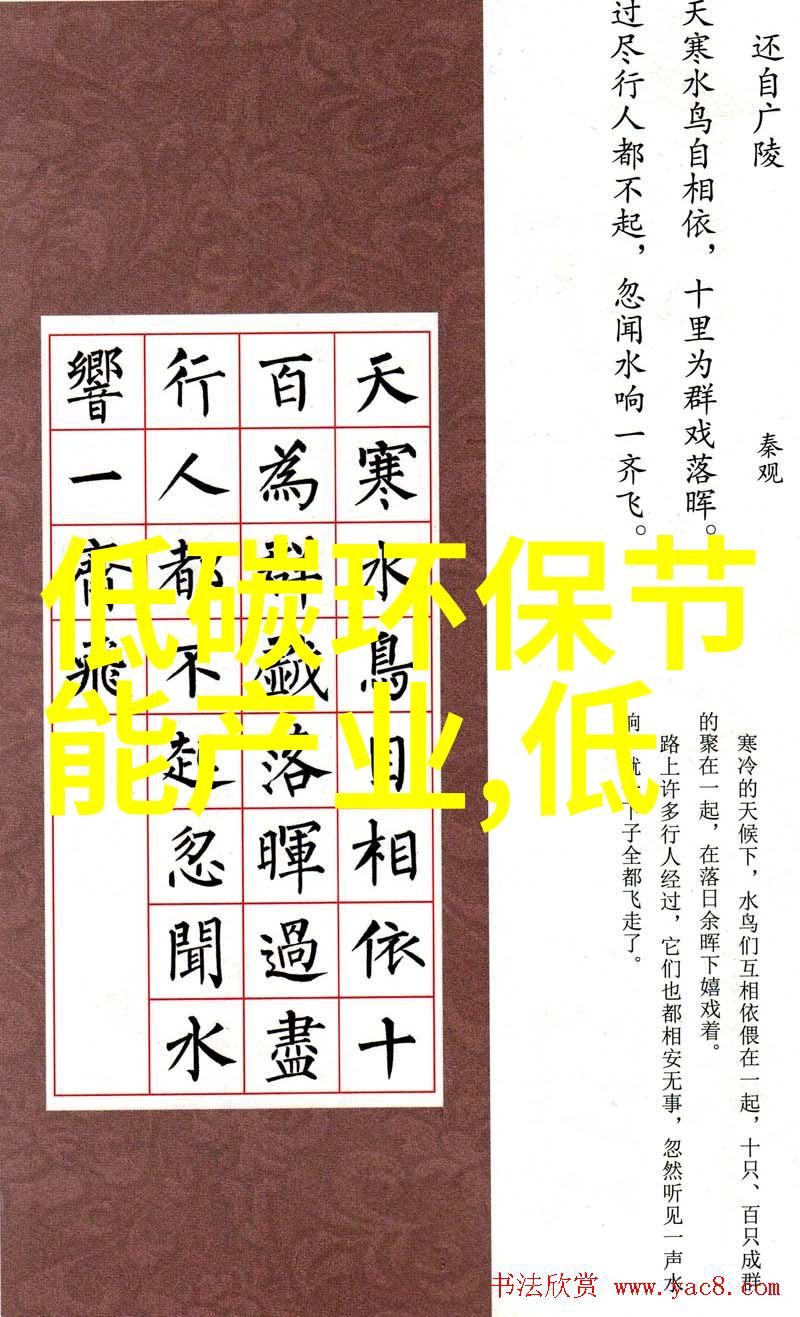 还自广陵
秦观
天寒水鸟自相依，十里为群戏落晖。
过尽行人都不起，忽闻水响一齐飞。
寒冷的天候下，水鸟们互相依偎在一起，十只、百只成群
的聚在一起，在落日余晖下嬉戏着。
路上许多行人经过，它们也都相安无事，忽然听见一声水
响就一下子全都飞走了。
天寒水鳥自相依十
百為群戲落暉過盡
行人都不起忽聞水
響一齊飛
低碳环保节
能产业,低
书法欣赏 www.yac8.com